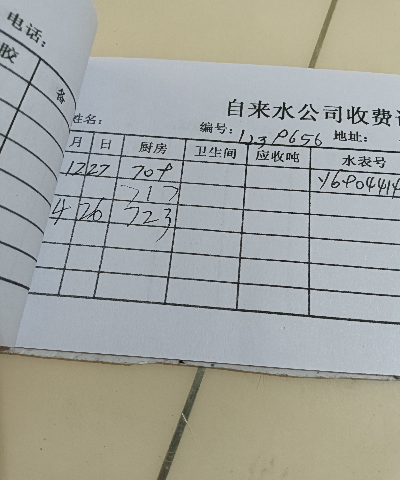 电话：
胶
备
自来水公司收费
姓名： 编号：1238656 地址：
月 日 厨房 卫生间 应收吨 水表号
12 27 708 Y6804414
717
4 26 723